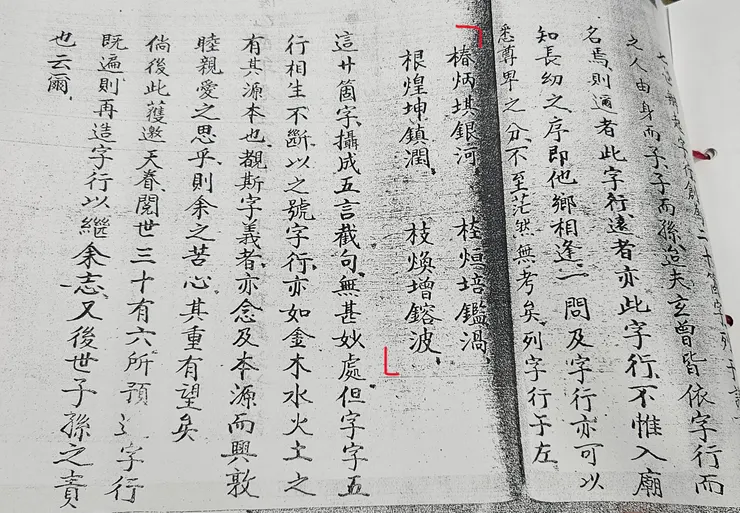 之人由身而子子而孫迨夫玄曾皆依字行而
名焉則邇者此字行遠者亦此字行不惟入廟
知長幼之序即他鄉相逢一問及字行亦可以
悉尊卑之分不至茫然無考矣列字行于左
椿炳堪銀河 桂烜培鑑渦
根煌坤鎮潤 枝煥增鎔波
這廿箇字攝成五言截句無甚妙處但字字五
行相生不斷以之號字行亦如金木水火土之
有其源本也觀斯字義者亦念及本源而興敦
睦親愛之思乎則余之苦心其重有望矣
倘後此荷邀天眷閱世三十有六所預字行
既遍則再造字行以繼余志又後世子孫之責
也云爾